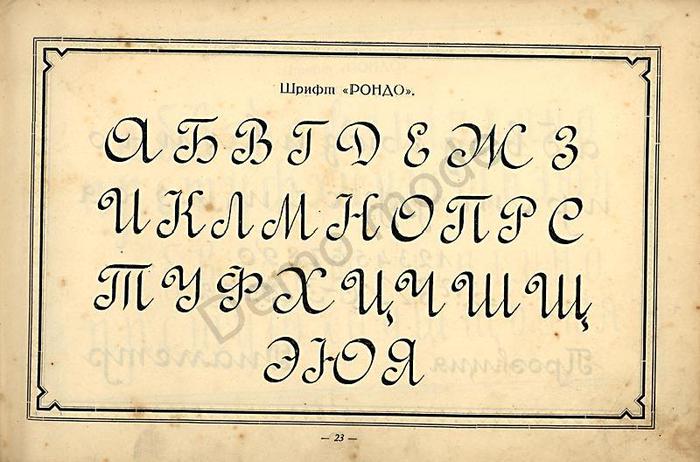 Шрифт «РОНДО».
АБВГДЕЖЗ
ИКЛМНОПРС
ТУФХЦЧШЩ
ЭЮЯ
— 23 —
Demo mode